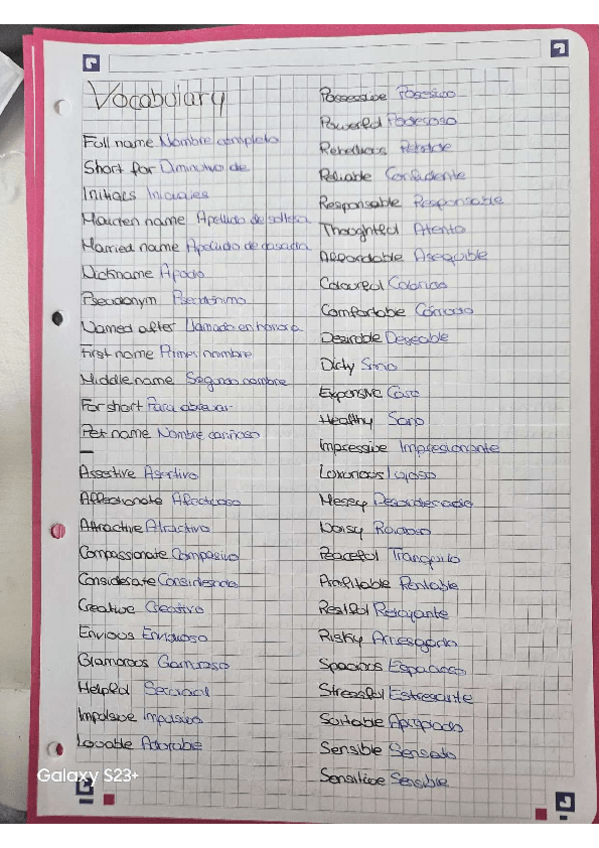 Vocabulary
Full name Nombre completo
Short for Diminutivo de
Initials Iniciales
Maiden name Apellido de soltera
Married name Apellido de casada
Nickname Apodo
Pseudonym Pseudónimo
Named after Llamado en honor a
First name Primer nombre
Middle name Segundo nombre
For short Para abreviar
Pet name Nombre cariñoso
Assertive Asertivo
Affectionate Afectuoso
Attractive Atractivo
Compassionate Compasivo
Considerate Considerado
Creative Creativo
Envious Envidioso
Glamorous Glamuroso
Helpful Servicial
Impulsive Impulsivo
Lovable Adorable
Possessive Posesivo
Powerful Poderoso
Rebellious Rebelde
Reliable Confidente
Responsable Responsable
Thoughtful Atento
Affordable Asequible
Colourful Colorido
Comfortable Cómodo
Desirable Deseable
Dirty Sucio
Expensive Caro
Healthy Sano
Impressive Impresionante
Luxurious Lujoso
Messy Desordenado
Noisy Ruidoso
Peaceful Tranquilo
Profitable Rentable
Restful Relajante
Risky Arriesgado
Spacious Espacioso
Stressful Estresante
Suitable Apropiado
Sensible Sensato
Sensitive Sensible
Galaxy S23+